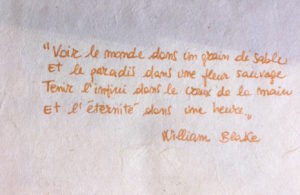 "Voir le monde dans un grain de sable
Et le paradis dans une fleur sauvage
Tenir l'infini dans le creux de la main
Et l'éternité dans une heure"
William Blake